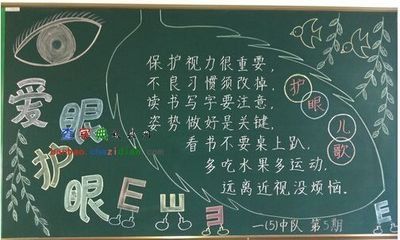 爱眼护眼
保护视力很重要，
不良习惯须改掉。
读书写字要注意，
姿势做好是关键。
看书不要桌上趴，
多吃水果多运动，
远离近视没烦恼。
护眼儿歌
E E E
一(5)中队 第5期